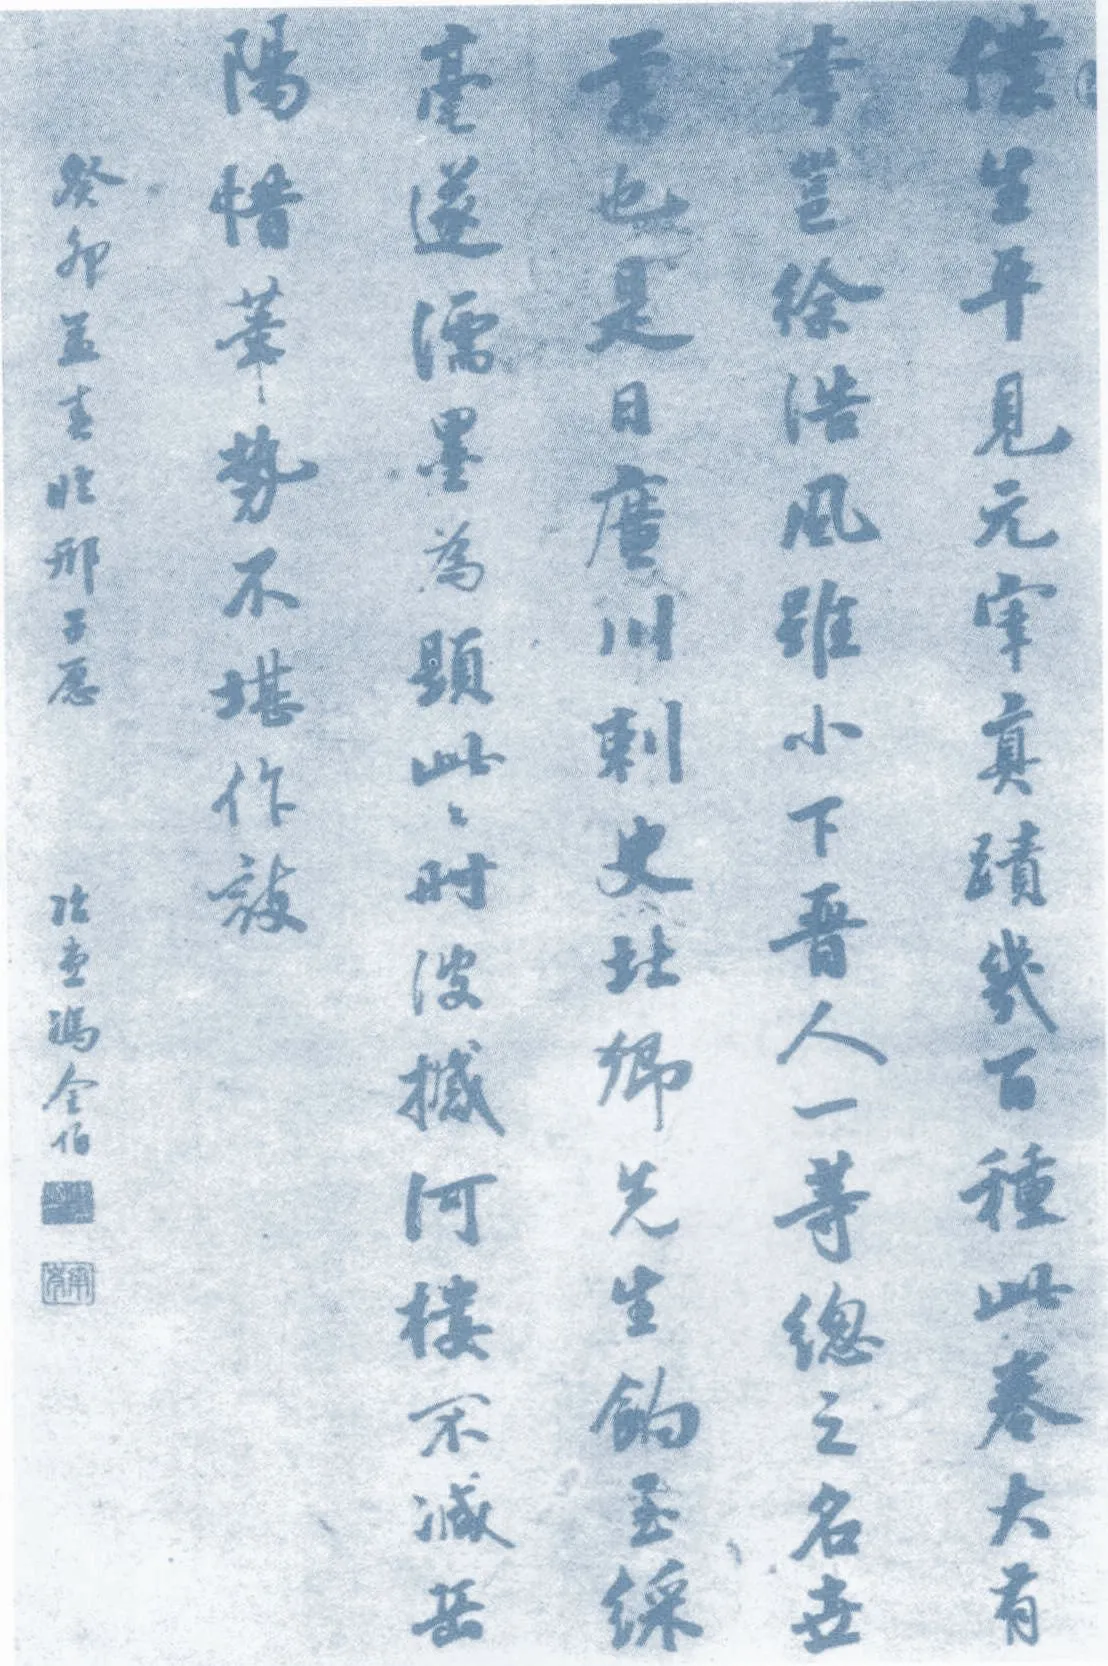 僕生平見元宰真蹟幾百種此卷大有
李邕徐浩風雖小下晉人一等總之名世
業也是日廬川刺史北鄉先生餉至綵
毫遂濡墨為題此〻時波撼河樓不減岳
陽惜筆勢不堪作敵
癸卯孟春臨邢子愿
治亭馮金伯